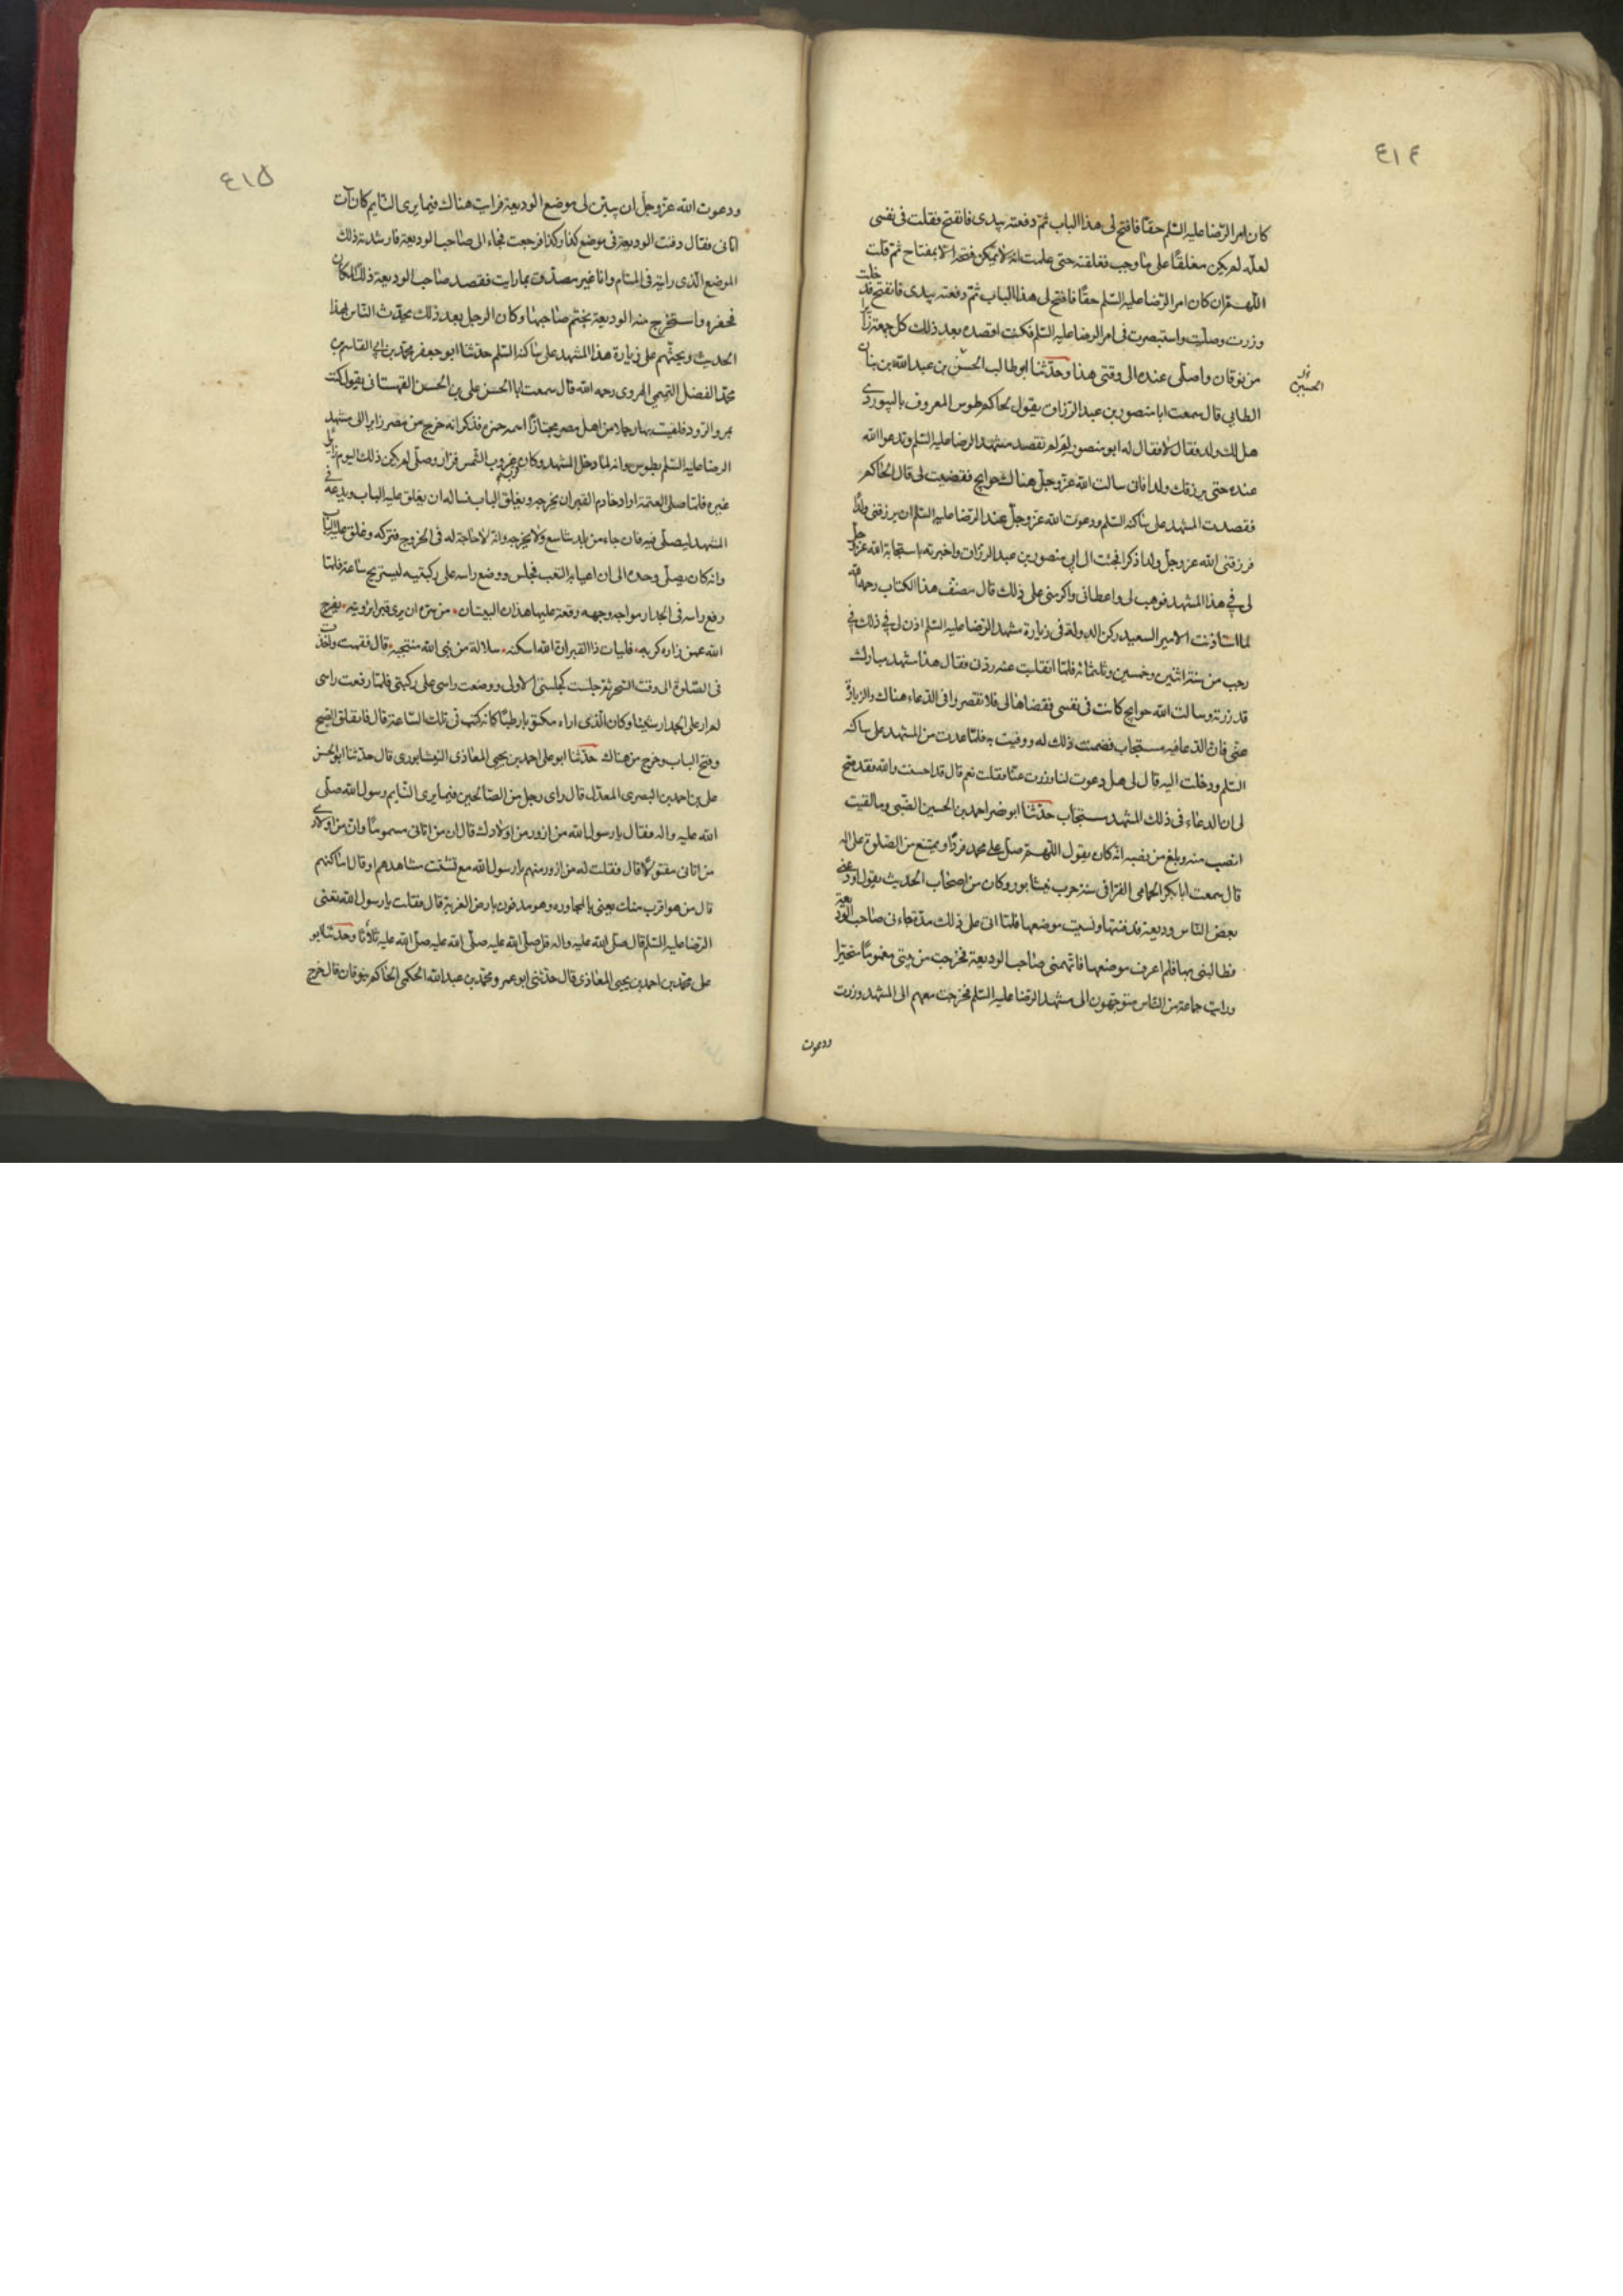 ٤١٤
كان امر الرضا عليه السلم حقا فافتح لى هذا الباب ثم دفعته بيدى فانفتح فقلت فى نفسى
لعله لم يكن مغلقا على ما وجب فغلقته حتى علمت انه لا يمكن فتحه الا بمفتاح ثم قلت
اللهم ان كان امر الرضا عليه السلم حقا فافتح لى هذا الباب ثم دفعته بيدى فانفتح فدخلت
وزرت وصليت واستبصرت فى امر الرضا عليه السلم فكنت اقصده بعد ذلك كل جمعة زائرا
من نوقان واصلى عنده الى وقتى هذا وحدثنا ابو طالب الحسن بن عبد الله بن بنان
الحسين
الطائى قال سمعت ابا منصور بن عبد الرزاق يقول لحاكم طوس المعروف بالبيوردى
هل لك ولد فقال لا فقال له ابو منصور لم لم تقصد مشهد الرضا عليه السلم وتدعوا الله
عنده حتى يرزقك ولدا فانى سالت الله عز وجل هناك حوايج فقضيت لى قال الحاكم
فقصدت المشهد على ساكنه السلم ودعوت الله عز وجل عند الرضا عليه السلم ان يرزقنى ولدا
فرزقنى الله عز وجل ولدا ذكرا فجئت الى ابى منصور بن عبد الرزاق واخبرته باستجابة الله عز وجل
لى فى هذا المشهد فوهب لى واعطانى واكرمنى على ذلك قال مصنف هذا الكتاب رحمه الله
لما استاذنت الامير السعيد ركن الدولة فى زيارة مشهد الرضا عليه السلم اذن لى فى ذلك فى
رجب من سنة اثنتين وخمسين وثلثمائة فلما انقلبت عنه ردنى فقال هذا مشهد مبارك
قد زرته وسالت الله حوايج كانت فى نفسى فقضاها لى فلا تقصر فى الدعاء هناك والزيارة
عنى فان الدعا فيه مستجاب فضمنت ذلك له ووفيت به فلما عدت من المشهد على ساكنه
السلم ودخلت اليه قال لى هل دعوت لنا وزرت عنا فقلت نعم قال قد احسنت والله فقد صح
لى ان الدعاء فى ذلك المشهد مستجاب حدثنا ابو نصر احمد بن الحسين الضبى وما لقيت
انصب منه وبلغ من نصبه انه كان يقول اللهم صل على محمد فردا ويمتنع من الصلوة على اله
قال سمعت ابا بكر الحمامى الفرا فى سكة حرب نيشابور وكان من اصحاب الحديث يقول اودعنى
بعض الناس وديعة فدفنتها ونسيت موضعها فلما اتى على ذلك مدة جاءنى صاحب الوديعة
فطالبنى بها فلم اعرف موضعها فاتهمنى صاحب الوديعة فخرجت من بيتى مغموما متحيرا
ورايت جماعة من الناس متوجهون الى مشهد الرضا عليه السلم فخرجت معهم الى المشهد وزرت
ودعوت
٤١٥
ودعوت الله عز وجل ان يبين لى موضع الوديعة فرايت هناك فيما يرى النايم كان آت
اتانى فقال دفنت الوديعة فى موضع كذا وكذا فرجعت فجاء الى صاحب الوديعة فارشدته ذلك
الموضع الذى رايته فى المنام وانا غير مصدق بما رايت فقصد صاحب الوديعة ذلك المكان
فحفره واستخرج منه الوديعة بختم صاحبها وكان الرجل بعد ذلك يحدث الناس بهذا
الحديث ويحثهم على زيارة هذا المشهد على ساكنه السلم حدثنا ابو جعفر محمد بن ابى القاسم بن
محمد الفضل التميمى الهروى رحمه الله قال سمعت ابا الحسن على بن الحسن القهستانى يقول كنت
بمرو الرود فلقيت بها رجلا من اهل مصر مجتازا اسمه حمزه فذكر انه خرج من مصر زايرا الى مشهد
الرضا عليه السلم بطوس وانه لما دخل المشهد وكان قرب غروب الشمس فزار وصلى ولم يكن ذلك اليوم زائر
غيره فلما صلى العتمة اراد خادم القبر ان يخرجه ويغلق الباب فساله ان يغلق عليه الباب ويدعه فى
المشهد ليصلى فيه فان جاء من بلد شاسع ولا يخرجه وانه لا حاجة له فى الخروج فتركه وغلق عليه الباب
وانه كان يصلى وحده الى ان اعيا به التعب فجلس ووضع راسه على ركبتيه ليستريح ساعة فلما
رفع راسه فى الجدار مواجه وجهه رقعة عليها هذان البيتان من سره ان يرى قبرا برؤيته يفرج
الله عمن زاره كربه فليات ذا القبر ان الله اسكنه سلالة من نبى الله منتجبه قال فقمت واخذت
فى الصلوة الى وقت السحر ثم جلست كجلستى الاولى ووضعت راسى على ركبتى فلما رفعت راسى
لم ار على الجدار شيئا وكان الذى اراه مكتوبا رطبا كانه كتب فى تلك الساعة قال فانفلق الصبح
وفتح الباب وخرج من هناك حدثنا ابو على احمد بن يحيى المعاذى النيشابورى قال حدثنا ابو الحسن
على بن احمد البصرى المعدل قال راى رجل من الصالحين فيما يرى النايم رسول الله صلى
الله عليه واله فقال يا رسول الله من ازور من اولادك قال ان من اتانى مسموما وان من اولادى
من اتانى مقتولا قال فقلت له من ازور منهم يا رسول الله مع تشتت مشاهدهم او قال اماكنهم
قال من هو اقرب منك يعنى بالمجاورة وهو مدفون بارض الغربة قال فقلت يا رسول الله تعنى
الرضا عليه السلم قال صلى الله عليه واله قل صلى الله عليه صلى الله عليه صلى الله عليه ثلاثا وحدثنا ابو
على محمد بن احمد بن يحيى المعاذى قال حدثنى ابو عمرو محمد بن عبد الله الحكمى الحاكم بنوقان قال خرج